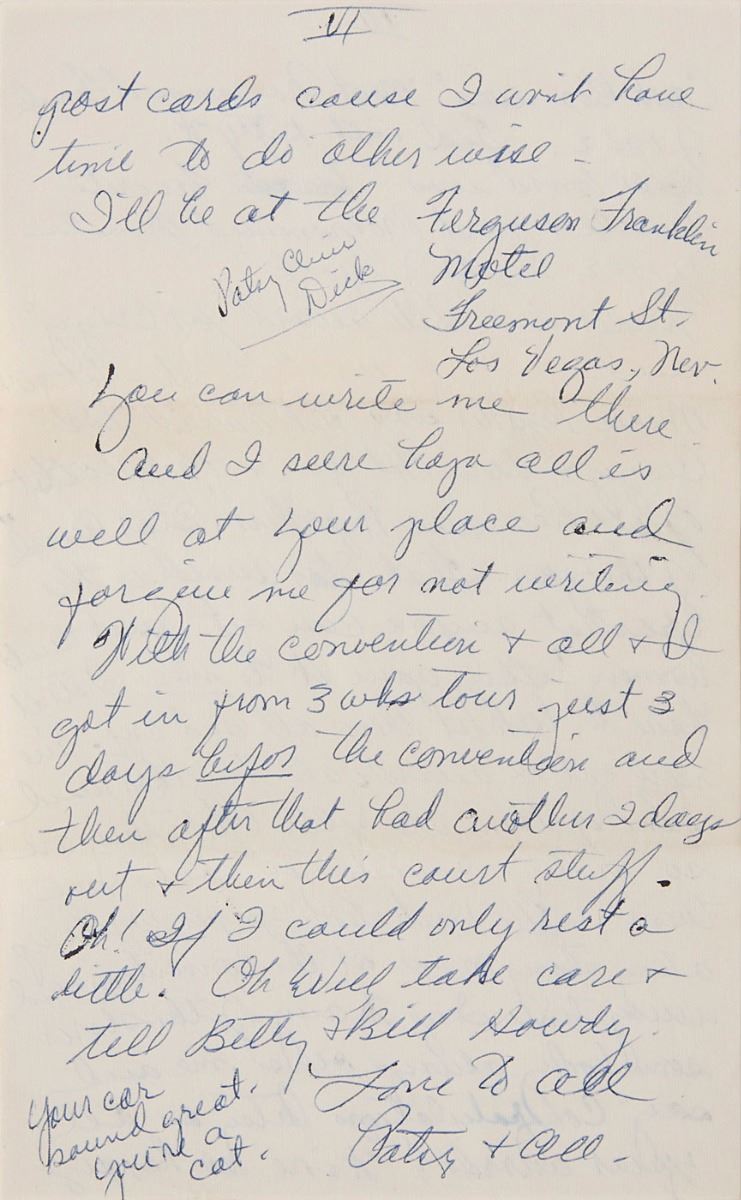 VI
post cards cause I wont have
time to do other wise -
I'll be at the Ferguson Franklin
Motel
Freemont St.
Los Vegas, Nev.
Patsy Cline
Dick
You can write me there
And I sure hope all is
well at your place and
forgive me for not writing.
With the convention & all & I
got in from 3 wks tour just 3
days befor the convention and
then after that had another 2 days
out & then this court stuff.
Oh! If I could only rest a
little. Oh Well take care &
tell Betty & Bill Howdy.
Love to all
Patsy & all -
Your car
sound great.
You're a
cat.